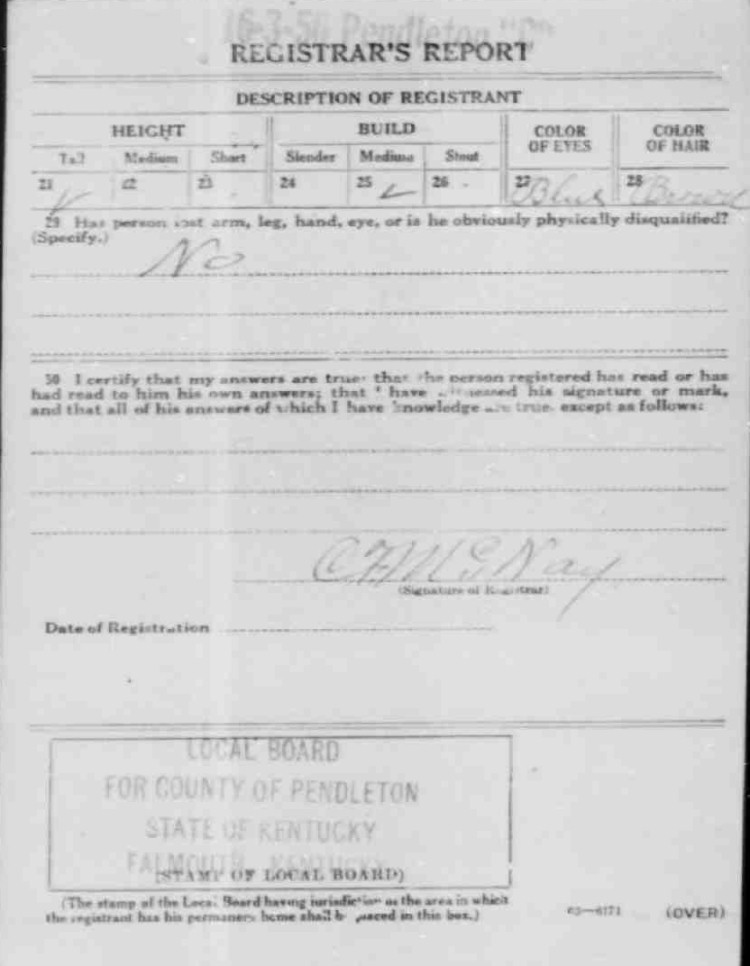 16-3-50 Pendleton "C"
REGISTRAR'S REPORT
DESCRIPTION OF REGISTRANT
HEIGHT BUILD COLOR OF EYES COLOR OF HAIR
Tall Medium Short Slender Medium Stout
21 ✓ 22 23 24 25 ✓ 26 27 Blue 28 Brown
29 Has person lost arm, leg, hand, eye, or is he obviously physically disqualified?
(Specify.)
No
30 I certify that my answers are true; that the person registered has read or has
had read to him his own answers; that I have witnessed his signature or mark,
and that all of his answers of which I have knowledge are true, except as follows:
(Signature of Registrar)
Date of Registration
LOCAL BOARD
FOR COUNTY OF PENDLETON
STATE OF KENTUCKY
FALMOUTH, KENTUCKY
(STAMP OF LOCAL BOARD)
(The stamp of the Local Board having jurisdiction of the area in which
the registrant has his permanent home shall be placed in this box.)
63—6171 (OVER)